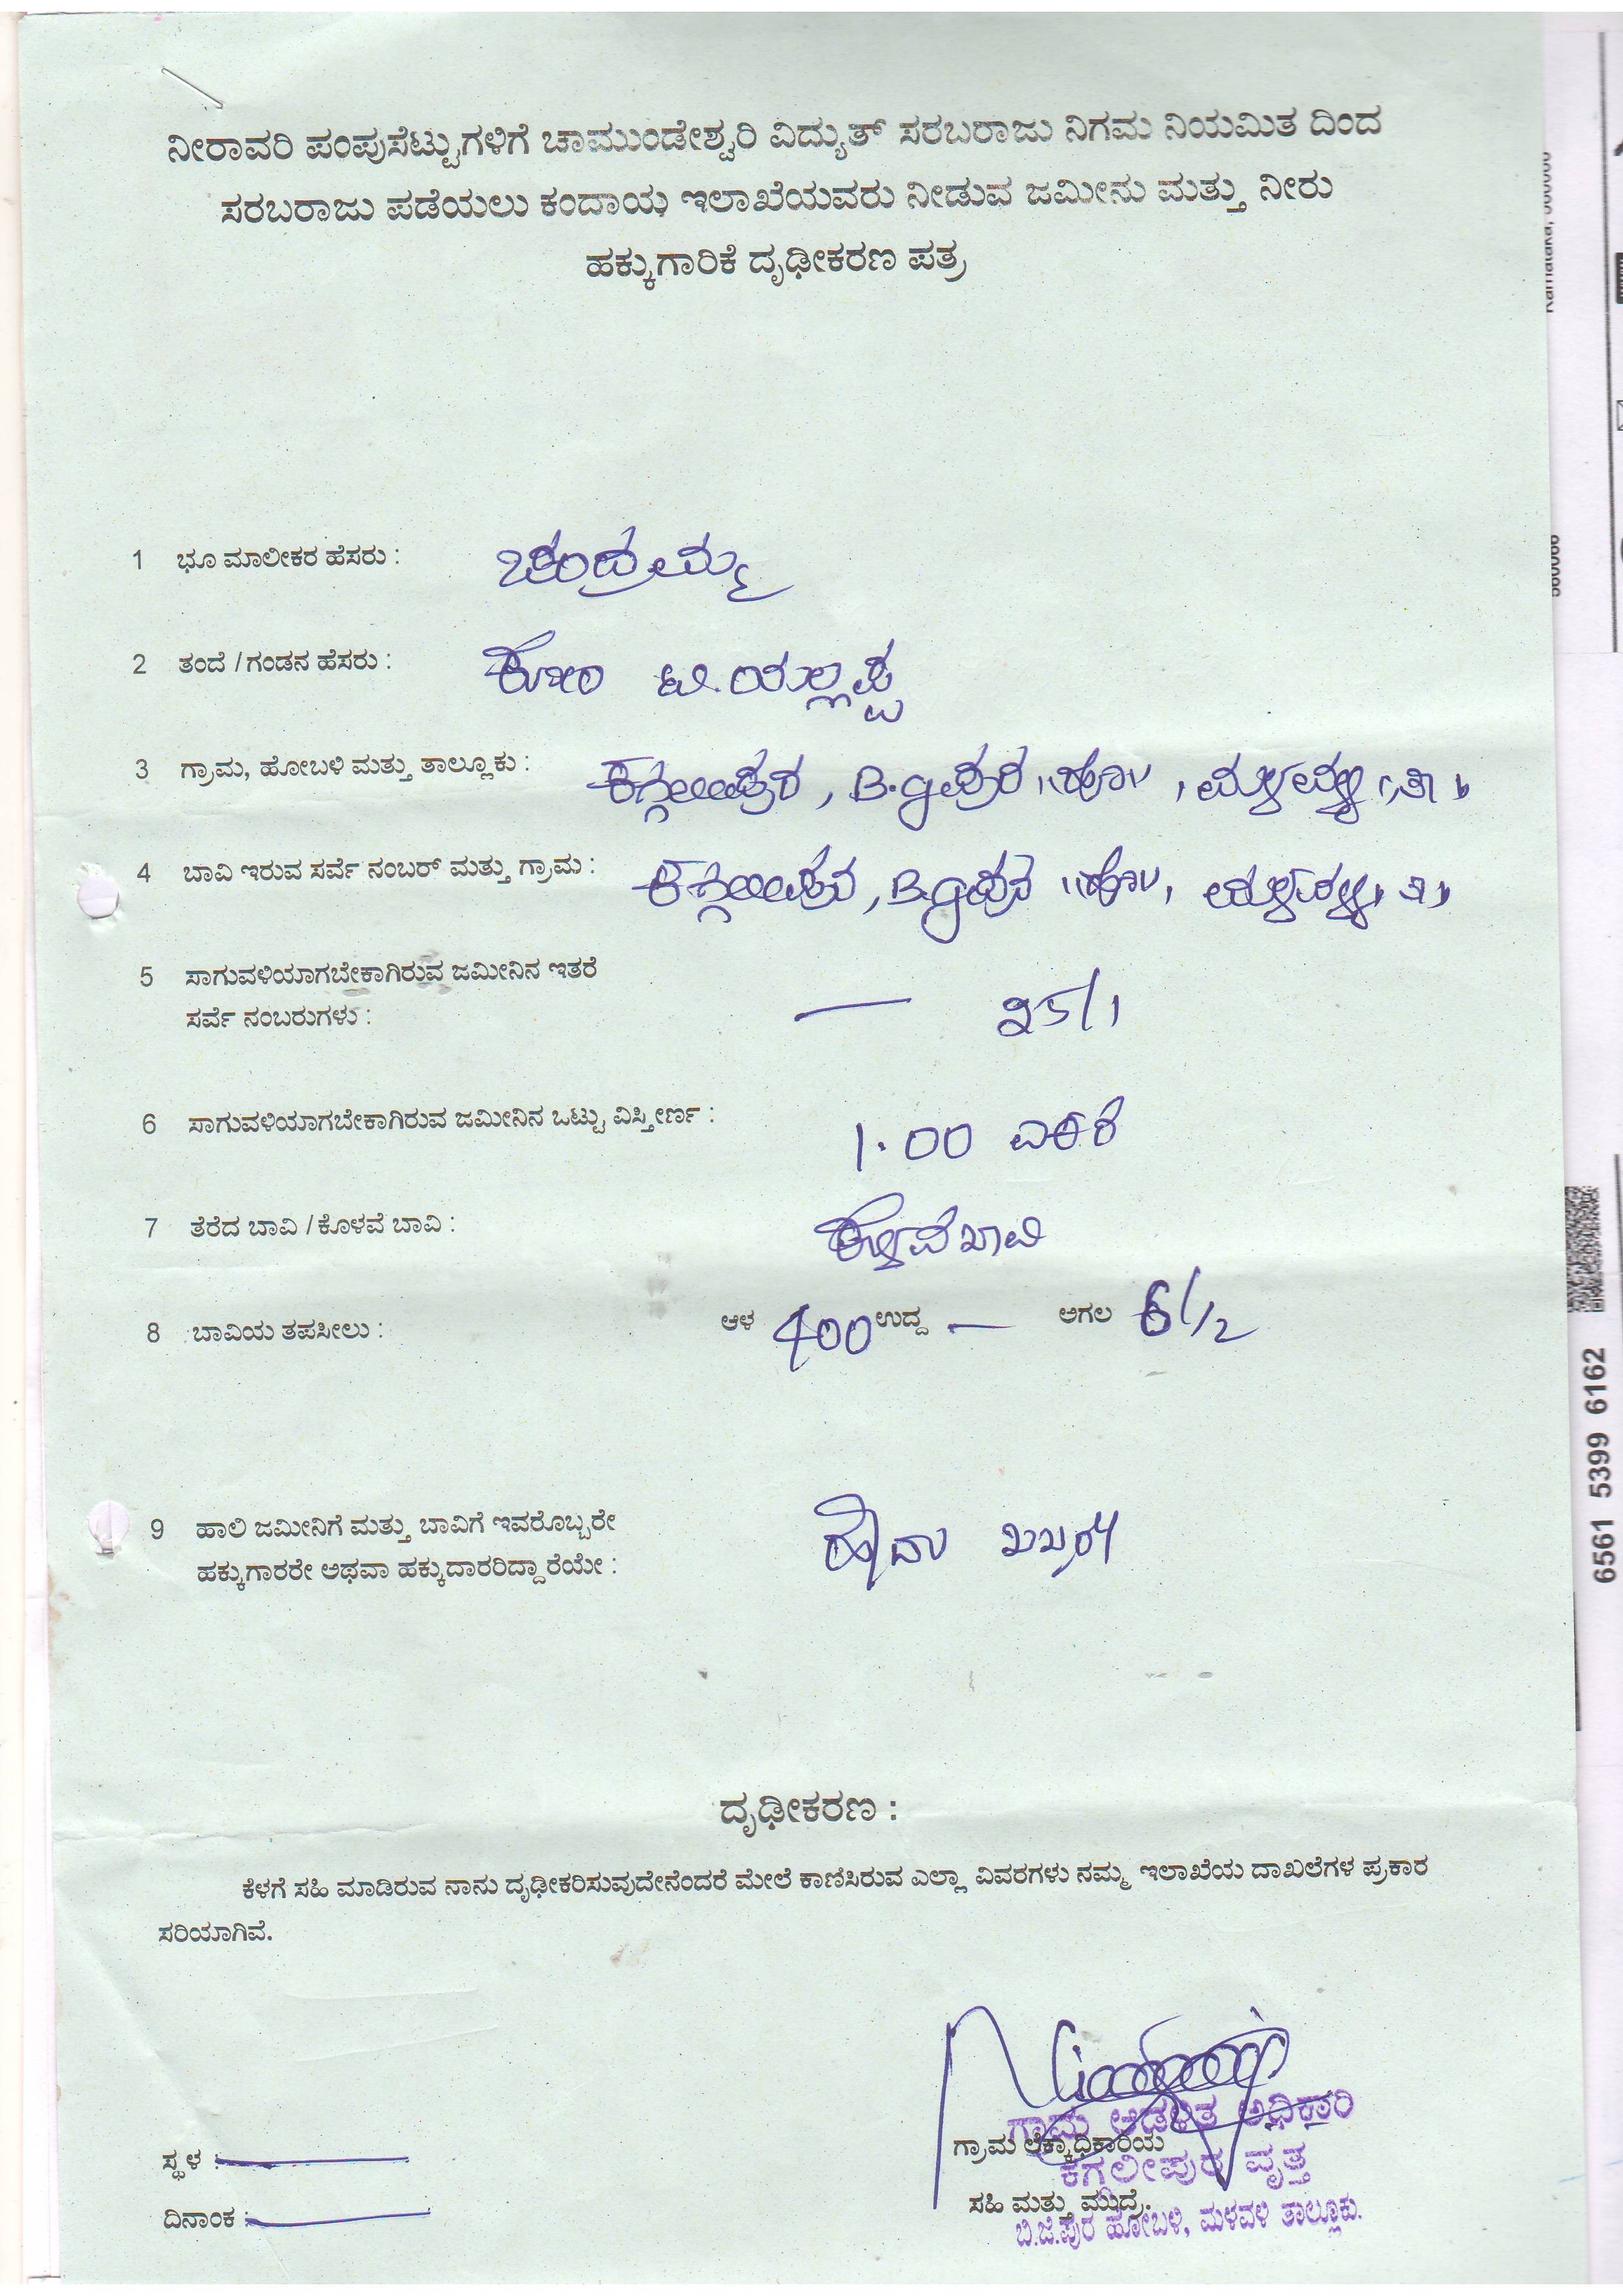 ನೀರಾವರಿ ಪಂಪುಸೆಟ್ಟುಗಳಿಗೆ ಚಾಮುಂಡೇಶ್ವರಿ ವಿದ್ಯುತ್ ಸರಬರಾಜು ನಿಗಮ ನಿಯಮಿತ ದಿಂದ
ಸರಬರಾಜು ಪಡೆಯಲು ಕಂದಾಯ ಇಲಾಖೆಯವರು ನೀಡುವ ಜಮೀನು ಮತ್ತು ನೀರು
ಹಕ್ಕುಗಾರಿಕೆ ದೃಢೀಕರಣ ಪತ್ರ
1 ಭೂ ಮಾಲೀಕರ ಹೆಸರು : ಚಂದ್ರಮ್ಮ
2 ತಂದೆ / ಗಂಡನ ಹೆಸರು : ಕೋಂ ಟಿ. ಯಲ್ಲಪ್ಪ
3 ಗ್ರಾಮ, ಹೋಬಳಿ ಮತ್ತು ತಾಲ್ಲೂಕು : ಕಗ್ಗಲೀಪುರ, B.Gಪುರ ಹೋ,
4 ಬಾವಿ ಇರುವ ಸರ್ವೆ ನಂಬರ್ ಮತ್ತು ಗ್ರಾಮ : ಕಗ್ಗಲೀಪುರ, B.Gಪುರ ಹೋ,
5 ಸಾಗುವಳಿಯಾಗಬೇಕಾಗಿರುವ ಜಮೀನಿನ ಇತರೆ
ಸರ್ವೆ ನಂಬರುಗಳು : — 25/1
6 ಸಾಗುವಳಿಯಾಗಬೇಕಾಗಿರುವ ಜಮೀನಿನ ಒಟ್ಟು ವಿಸ್ತೀರ್ಣ : 1.00 ಎಕರೆ
7 ತೆರೆದ ಬಾವಿ / ಕೊಳವೆ ಬಾವಿ : ಕೊಳವೆ ಬಾವಿ
8 ಬಾವಿಯ ತಪಸೀಲು : ಆಳ 400 ಉದ್ದ — ಅಗಲ 6 1/2
9 ಹಾಲಿ ಜಮೀನಿಗೆ ಮತ್ತು ಬಾವಿಗೆ ಇವರೊಬ್ಬರೇ
ಹಕ್ಕುಗಾರರೇ ಅಥವಾ ಹಕ್ಕುದಾರರಿದ್ದಾರೆಯೇ : ಹೌದು ಒಬ್ಬರೇ
ದೃಢೀಕರಣ :
ಕೆಳಗೆ ಸಹಿ ಮಾಡಿರುವ ನಾನು ದೃಢೀಕರಿಸುವುದೇನೆಂದರೆ ಮೇಲೆ ಕಾಣಿಸಿರುವ ಎಲ್ಲಾ ವಿವರಗಳು ನಮ್ಮ ಇಲಾಖೆಯ ದಾಖಲೆಗಳ ಪ್ರಕಾರ
ಸರಿಯಾಗಿವೆ.
ಗ್ರಾಮ ಆಡಳಿತ ಅಧಿಕಾರಿ
ಸ್ಥಳ : ಗ್ರಾಮ ಲೆಕ್ಕಾಧಿಕಾರಿಯ
ಕಗ್ಗಲೀಪುರ ವೃತ್ತ
ದಿನಾಂಕ : ಸಹಿ ಮತ್ತು ಮುದ್ರೆ.
ಬಿ.ಜಿ.ಪುರ ಹೋಬಳಿ, ಮಳವಳಿ ತಾಲ್ಲೂಕು.
6561 5399 6162